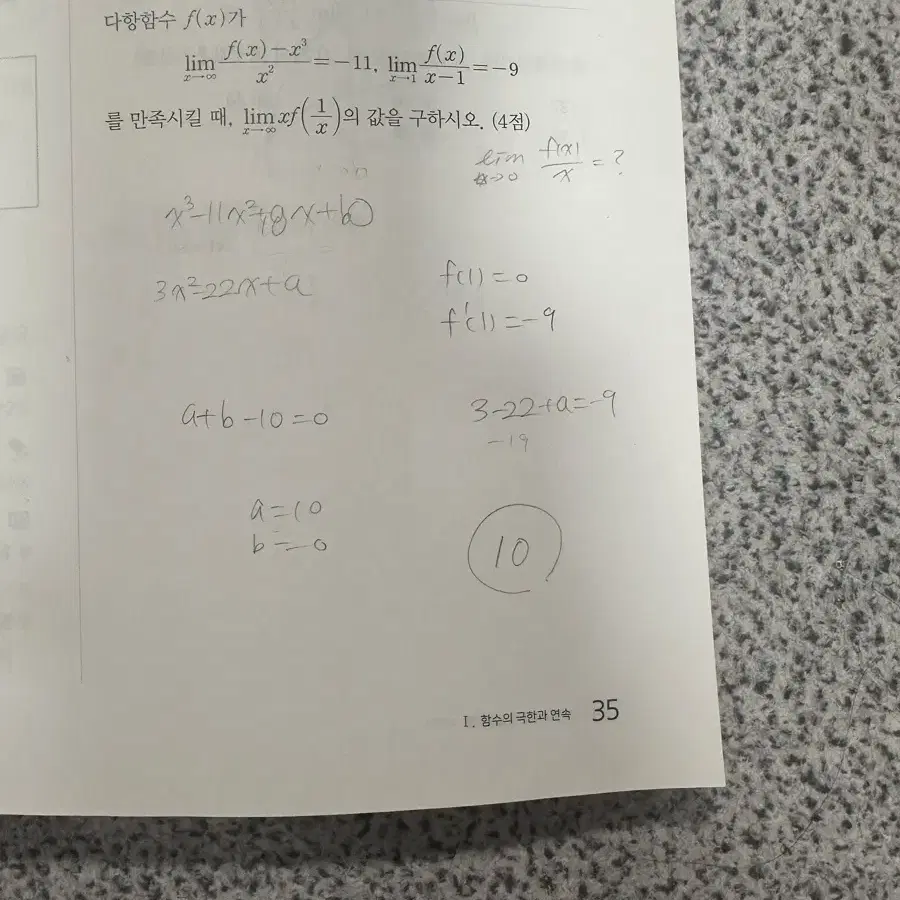 다항함수 f(x)가
lim x→∞ (f(x)−x³)/x² = −11, lim x→1 f(x)/(x−1) = −9
를 만족시킬 때, lim x→∞ xf(1/x)의 값을 구하시오. (4점)
lim x→0 f(x)/x = ?
3x²-22x+a
f(1)=0
f'(1)=-9
a+b-10=0
3-22+a=-9
-19
a=10
b=0
10
Ⅰ. 함수의 극한과 연속 35